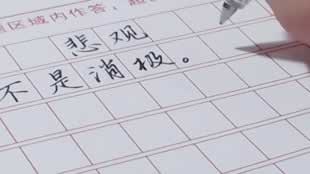 区域内作答,
悲观
不是消极。